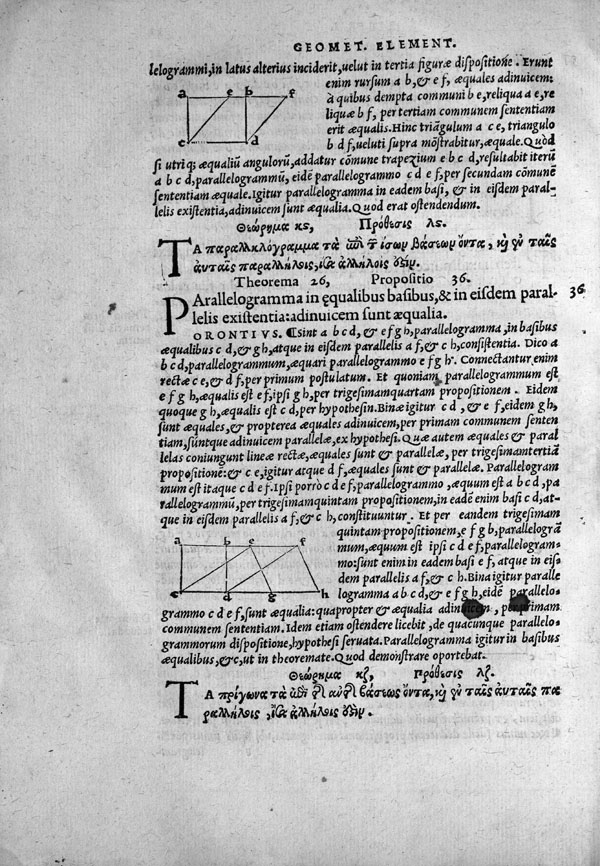 GEOMET. ELEMENT.
lelogrammi, in latus alterius inciderit, uelut in tertia figuræ dispositione. Erunt
enim rursum a b, & e f, æquales adinuicem:
à quibus dempta communi b e, reliqua a e, re
liquæ b f, per tertiam communem sententiam
erit æqualis. Hinc triãgulum a c e, triangulo
b d f, ueluti supra mõstrabitur, æquale. Quòd
si utriq; æqualiũ angulorũ, addatur cõmune trapezium e b c d, resultabit iterũ
a b c d, parallelogrammũ, eidẽ parallelogrammo c d e f, per secundam cõmunẽ
sententiam æquale. Igitur parallelogramma in eadem basi, & in eisdem paral-
lelis existentia, adinuicem sunt æqualia. Quod erat ostendendum.
a e b f
c d
Θεώρημα κς, Πρόθεσις λς.
ΤΑ παραλληλόγραμμα τὰ ἐπὶ τ ἴσων βάσεων ὄντα, κỳ ἐν ταῖς
αὐταῖς παραλλήλοις, ἴσα ἀλλήλοις ἐστίν.
Theorema 26, Propositio 36.
PArallelogramma in ęqualibus basibus, & in eisdem paral- 36
lelis existentia: adinuicem sunt æqualia.
ORONTIVS. ¶Sint a b c d, & e f g h, parallelogramma, in basibus
æqualibus c d, & g h, atque in eisdem parallelis a f, & c h, consistentia. Dico a
b c d, parallelogrammum, æquari parallelogrammo e f g h. Connectantur enim
rectæ c e, & d f, per primum postulatum. Et quoniam parallelogrammum est
e f g h, æqualis est e f, ipsi g h, per trigesimamquartam propositionem. Eidem
quoque g h, æqualis est c d, per hypothesin. Binæ igitur c d, & e f, eidem g h,
sunt æquales, & propterea æquales adinuicem, per primam communem senten
tiam, suntque adinuicem parallelæ, ex hypothesi. Quæ autem æquales & paral
lelas coniungunt lineæ rectæ, æquales sunt & parallelæ, per trigesimamtertiã
propositionẽ: & c e, igitur atque d f, æquales sunt & parallelæ. Parallelogram
mum est itaque c d e f. Ipsi porrò c d e f, parallelogrammo, æquum est a b c d, pa
rallelogrammũ, per trigesimamquintam propositionem, in eadẽ enim basi c d, at-
que in eisdem parallelis a f, & c h, constituuntur. Et per eandem trigesimam
quintam propositionem, e f g h, parallelogrã
mum, æquum est ipsi c d e f, parallelogram-
mo: sunt enim in eadem basi e f, atque in eis-
dem parallelis a f, & c h. Bina igitur paralle
logramma a b c d, & e f g h, eidẽ parallelo-
grammo c d e f, sunt æqualia: quapropter & æqualia adinuicem, per primam
communem sententiam. Idem etiam ostendere licebit, de quacunque parallelo-
grammorum dispositione, hypothesi seruata. Parallelogramma igitur in basibus
æqualibus, &c, ut in theoremate. Quod demonstrare oportebat.
a b e f
c d g h
Θεώρημα κζ, Πρόθεσις λζ.
ΤΑ τρίγωνα τὰ ἐπὶ τῆς αὐτῆς βάσεως ὄντα, κỳ ἐν ταῖς αὐταῖς πα
ραλλήλοις, ἴσα ἀλλήλοις ἐστίν.